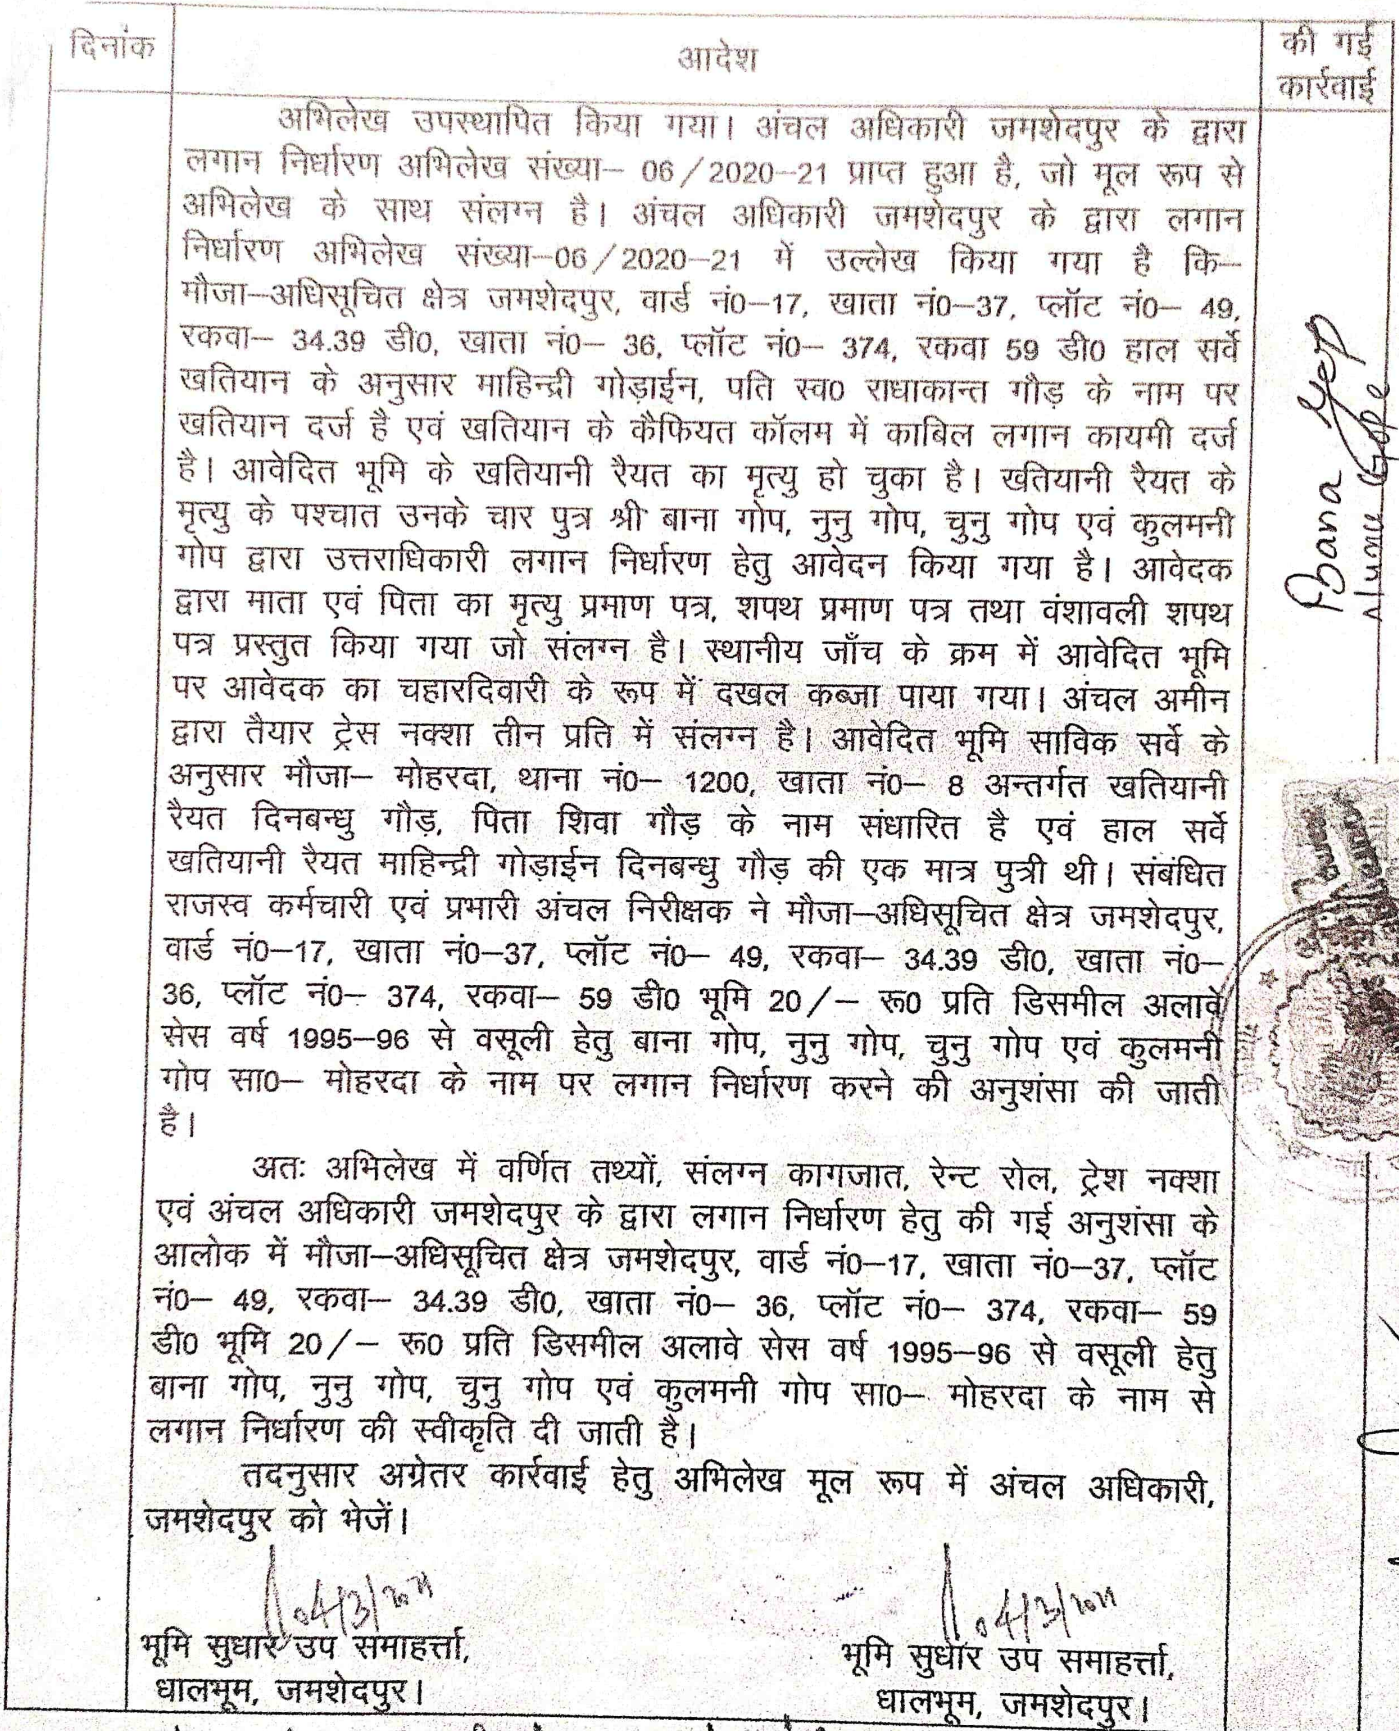 दिनांक
आदेश
की गई
कार्रवाई
अभिलेख उपस्थापित किया गया। अंचल अधिकारी जमशेदपुर के द्वारा
लगान निर्धारण अभिलेख संख्या– 06/2020–21 प्राप्त हुआ है, जो मूल रूप से
अभिलेख के साथ संलग्न है। अंचल अधिकारी जमशेदपुर के द्वारा लगान
निर्धारण अभिलेख संख्या–06/2020–21 में उल्लेख किया गया है कि–
मौजा–अधिसूचित क्षेत्र जमशेदपुर, वार्ड नं0–17, खाता नं0–37, प्लॉट नं0– 49,
रकवा– 34.39 डी0, खाता नं0– 36, प्लॉट नं0– 374, रकवा 59 डी0 हाल सर्वे
खतियान के अनुसार माहिन्द्री गोड़ाईन, पति स्व0 राधाकान्त गौड़ के नाम पर
खतियान दर्ज है एवं खतियान के कैफियत कॉलम में काबिल लगान कायमी दर्ज
है। आवेदित भूमि के खतियानी रैयत का मृत्यु हो चुका है। खतियानी रैयत के
मृत्यु के पश्चात उनके चार पुत्र श्री बाना गोप, नुनु गोप, चुनु गोप एवं कुलमनी
गोप द्वारा उत्तराधिकारी लगान निर्धारण हेतु आवेदन किया गया है। आवेदक
द्वारा माता एवं पिता का मृत्यु प्रमाण पत्र, शपथ प्रमाण पत्र तथा वंशावली शपथ
पत्र प्रस्तुत किया गया जो संलग्न है। स्थानीय जाँच के क्रम में आवेदित भूमि
पर आवेदक का चहारदिवारी के रूप में दखल कब्जा पाया गया। अंचल अमीन
द्वारा तैयार ट्रेस नक्शा तीन प्रति में संलग्न है। आवेदित भूमि साविक सर्वे के
अनुसार मौजा– मोहरदा, थाना नं0– 1200, खाता नं0– 8 अन्तर्गत खतियानी
रैयत दिनबन्धु गौड़, पिता शिवा गौड़ के नाम संधारित है एवं हाल सर्वे
खतियानी रैयत माहिन्द्री गोड़ाईन दिनबन्धु गौड़ की एक मात्र पुत्री थी। संबंधित
राजस्व कर्मचारी एवं प्रभारी अंचल निरीक्षक ने मौजा–अधिसूचित क्षेत्र जमशेदपुर,
वार्ड नं0–17, खाता नं0–37, प्लॉट नं0– 49, रकवा– 34.39 डी0, खाता नं0–
36, प्लॉट नं0– 374, रकवा– 59 डी0 भूमि 20/– रू0 प्रति डिसमील अलावे
सेस वर्ष 1995–96 से वसूली हेतु बाना गोप, नुनु गोप, चुनु गोप एवं कुलमनी
गोप सा0– मोहरदा के नाम पर लगान निर्धारण करने की अनुशंसा की जाती
है।
अतः अभिलेख में वर्णित तथ्यों, संलग्न कागजात, रेन्ट रोल, ट्रेश नक्शा
एवं अंचल अधिकारी जमशेदपुर के द्वारा लगान निर्धारण हेतु की गई अनुशंसा के
आलोक में मौजा–अधिसूचित क्षेत्र जमशेदपुर, वार्ड नं0–17, खाता नं0–37, प्लॉट
नं0– 49, रकवा– 34.39 डी0, खाता नं0– 36, प्लॉट नं0– 374, रकवा– 59
डी0 भूमि 20/– रू0 प्रति डिसमील अलावे सेस वर्ष 1995–96 से वसूली हेतु
बाना गोप, नुनु गोप, चुनु गोप एवं कुलमनी गोप सा0– मोहरदा के नाम से
लगान निर्धारण की स्वीकृति दी जाती है।
तदनुसार अग्रेतर कार्रवाई हेतु अभिलेख मूल रूप में अंचल अधिकारी,
जमशेदपुर को भेजें।
भूमि सुधार उप समाहर्त्ता,
धालभूम, जमशेदपुर।
भूमि सुधार उप समाहर्त्ता,
धालभूम, जमशेदपुर।
Bana Gop
Nunu Gope